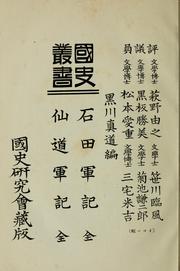 評議員
文學博士 萩野由之
文學博士 黒板勝美
文學博士 松本愛重
文學士 笹川臨風
文學士 菊池謙二郎
文學博士 三宅米吉
黒川真道編
國史叢書
石田軍記 全
仙道軍記 全
國史研究會藏版